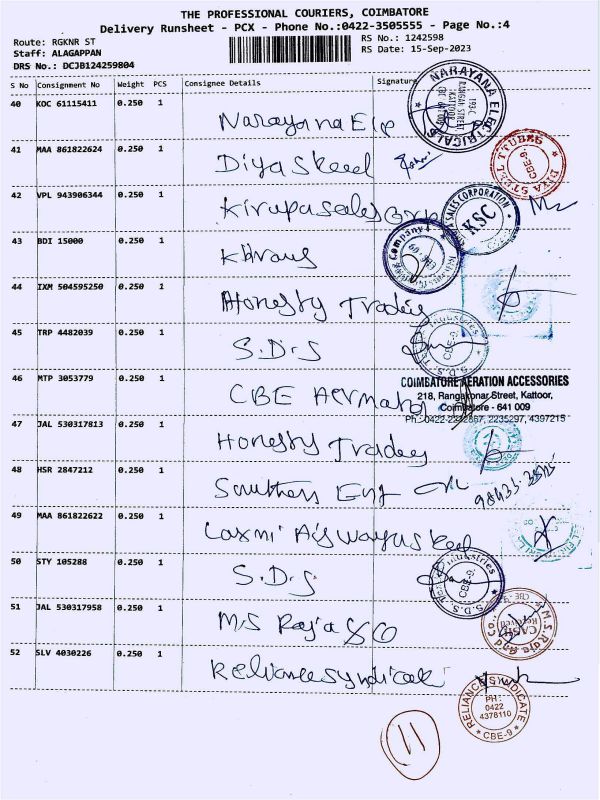 THE PROFESSIONAL COURIERS, COIMBATORE
Delivery Runsheet - PCX - Phone No.:0422-3505555 - Page No.:4
Route: RGKNR ST
RS No.: 1242598
Staff: ALAGAPPAN
RS Date: 15-Sep-2023
DRS No.: DCJB124259804
S No Consignment No Weight PCS Consignee Details Signature
40 KOC 61115411 0.250 1 Narayana Ele
NARAYANA ELECTRICALS
41 MAA 861822624 0.250 1 Diya Steel
DIYA STEEL TTUBES
CBE-9
42 VPL 943906344 0.250 1 Kirupa sales Corp
SALES CORPORATION
KSC
43 BDI 15000 0.250 1
Company
44 IXM 504595250 0.250 1 Honesty Traders
45 TRP 4482039 0.250 1 S.D.S
Industries
CBE-9
46 MTP 3053779 0.250 1 CBE
COIMBATORE AERATION ACCESSORIES
218, Rangakonar Street, Kattoor,
Coimbatore - 641 009
Ph : 0422-2242887, 2235297, 4397215
47 JAL 530317813 0.250 1 Honesty Traders
48 HSR 2847212 0.250 1 Southern Eng
49 MAA 861822622 0.250 1 Laxmi Aiswarya Steel
50 STY 105288 0.250 1 S.D.S
Industries
CBE-9
S.D.S.
51 JAL 530317958 0.250 1 M/S Raja & Co
CBE-9
M.S. Raja and Co.
52 SLV 4030226 0.250 1 Reliance syndicate
RELIANCE SYNDICATE
PH:
0422
4378110
CBE-9
11